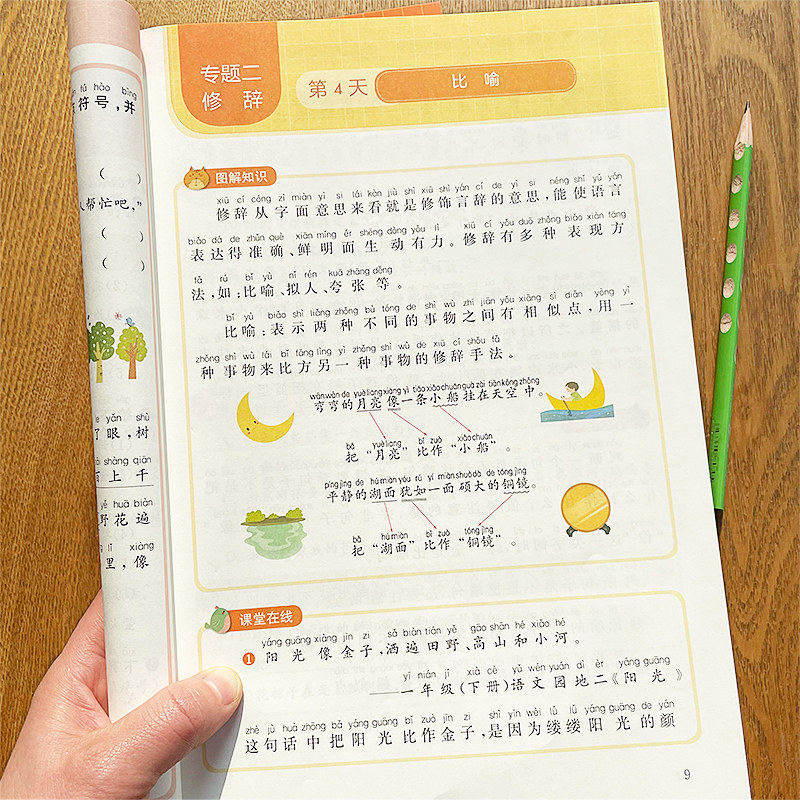 fú hào bìng
符号,并
( )
帮忙吧,”
( )
( )
yǎn shù
了眼,树
shàng qiān
上千
yě huā biàn
野花遍
lǐ xiàng
里,像
专题二
修辞
第4天
比喻
图解知识
xiū cí cóng zì miàn yì si lái kàn jiù shì xiū shì yán cí de yì si néng shǐ yǔ yán
修辞从字面意思来看就是修饰言辞的意思,能使语言
biǎo dá de zhǔn què xiān míng ér shēng dòng yǒu lì xiū cí yǒu duō zhǒng biǎo xiàn fāng
表达得准确、鲜明而生动有力。修辞有多种表现方
fǎ rú bǐ yù nǐ rén kuā zhāng děng
法,如:比喻、拟人、夸张等。
bǐ yù biǎo shì liǎng zhǒng bù tóng de shì wù zhī jiān yǒu xiāng sì diǎn yòng yì
比喻:表示两种不同的事物之间有相似点,用一
zhǒng shì wù lái bǐ fāng lìng yì zhǒng shì wù de xiū cí shǒu fǎ
种事物来比方另一种事物的修辞手法。
wān wān de yuè liang xiàng yì tiáo xiǎo chuán guà zài tiān kōng zhōng
弯弯的月亮像一条小船挂在天空中。
bǎ yuè liang bǐ zuò xiǎo chuán
把“月亮”比作“小船”。
píng jìng de hú miàn yóu rú yí miàn shuò dà de tóng jìng
平静的湖面犹如一面硕大的铜镜。
bǎ hú miàn bǐ zuò tóng jìng
把“湖面”比作“铜镜”。
课堂在线
yáng guāng xiàng jīn zi sǎ biàn tián yě gāo shān hé xiǎo hé
1 阳光像金子,洒遍田野、高山和小河。
yì nián jí xià cè yǔ wén yuán dì èr yáng guāng
——一年级(下册)语文园地二《阳光》
zhè jù huà zhōng bǎ yáng guāng bǐ zuò jīn zi shì yīn wèi lǚ lǚ yáng guāng de yán
这句话中把阳光比作金子,是因为缕缕阳光的颜
9